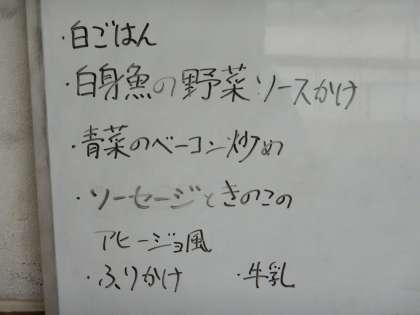 ・白ごはん
・白身魚の野菜ソースかけ
・青菜のベーコン炒め
・ソーセージときのこの
アヒージョ風
・ふりかけ ・牛乳